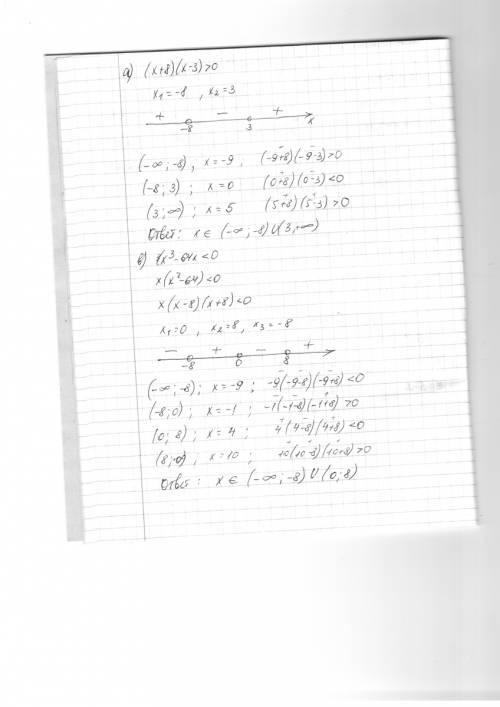 а) (x+8)(x-3)>0
x₁=-8 , x₂=3
+ - +
-8 3 x
(-∞; -8), x=-9. (-9+8)(-9-3)>0
(-8; 3) ; x=0 (0+8)(0-3)<0
(3; ∞) ; x=5 (5+8)(5-3)>0
Ответ: x∈ (-∞; -8)∪(3,+∞)
в) x³-64x<0
x(x²-64)<0
x(x-8)(x+8)<0
x₁=0 , x₂=8, x₃=-8
- + - +
-8 0 8
(-∞; -8); x=-9 ; -9(-9-8)(-9+8)<0
(-8; 0) ; x=-1 ; -1(-1-8)(-1+8)>0
(0; 8) ; x=4 ; 4(4-8)(4+8)<0
(8; ∞) ; x=10 ; 10(10-8)(10+8)>0
Ответ: x∈ (-∞; -8)∪(0; 8)